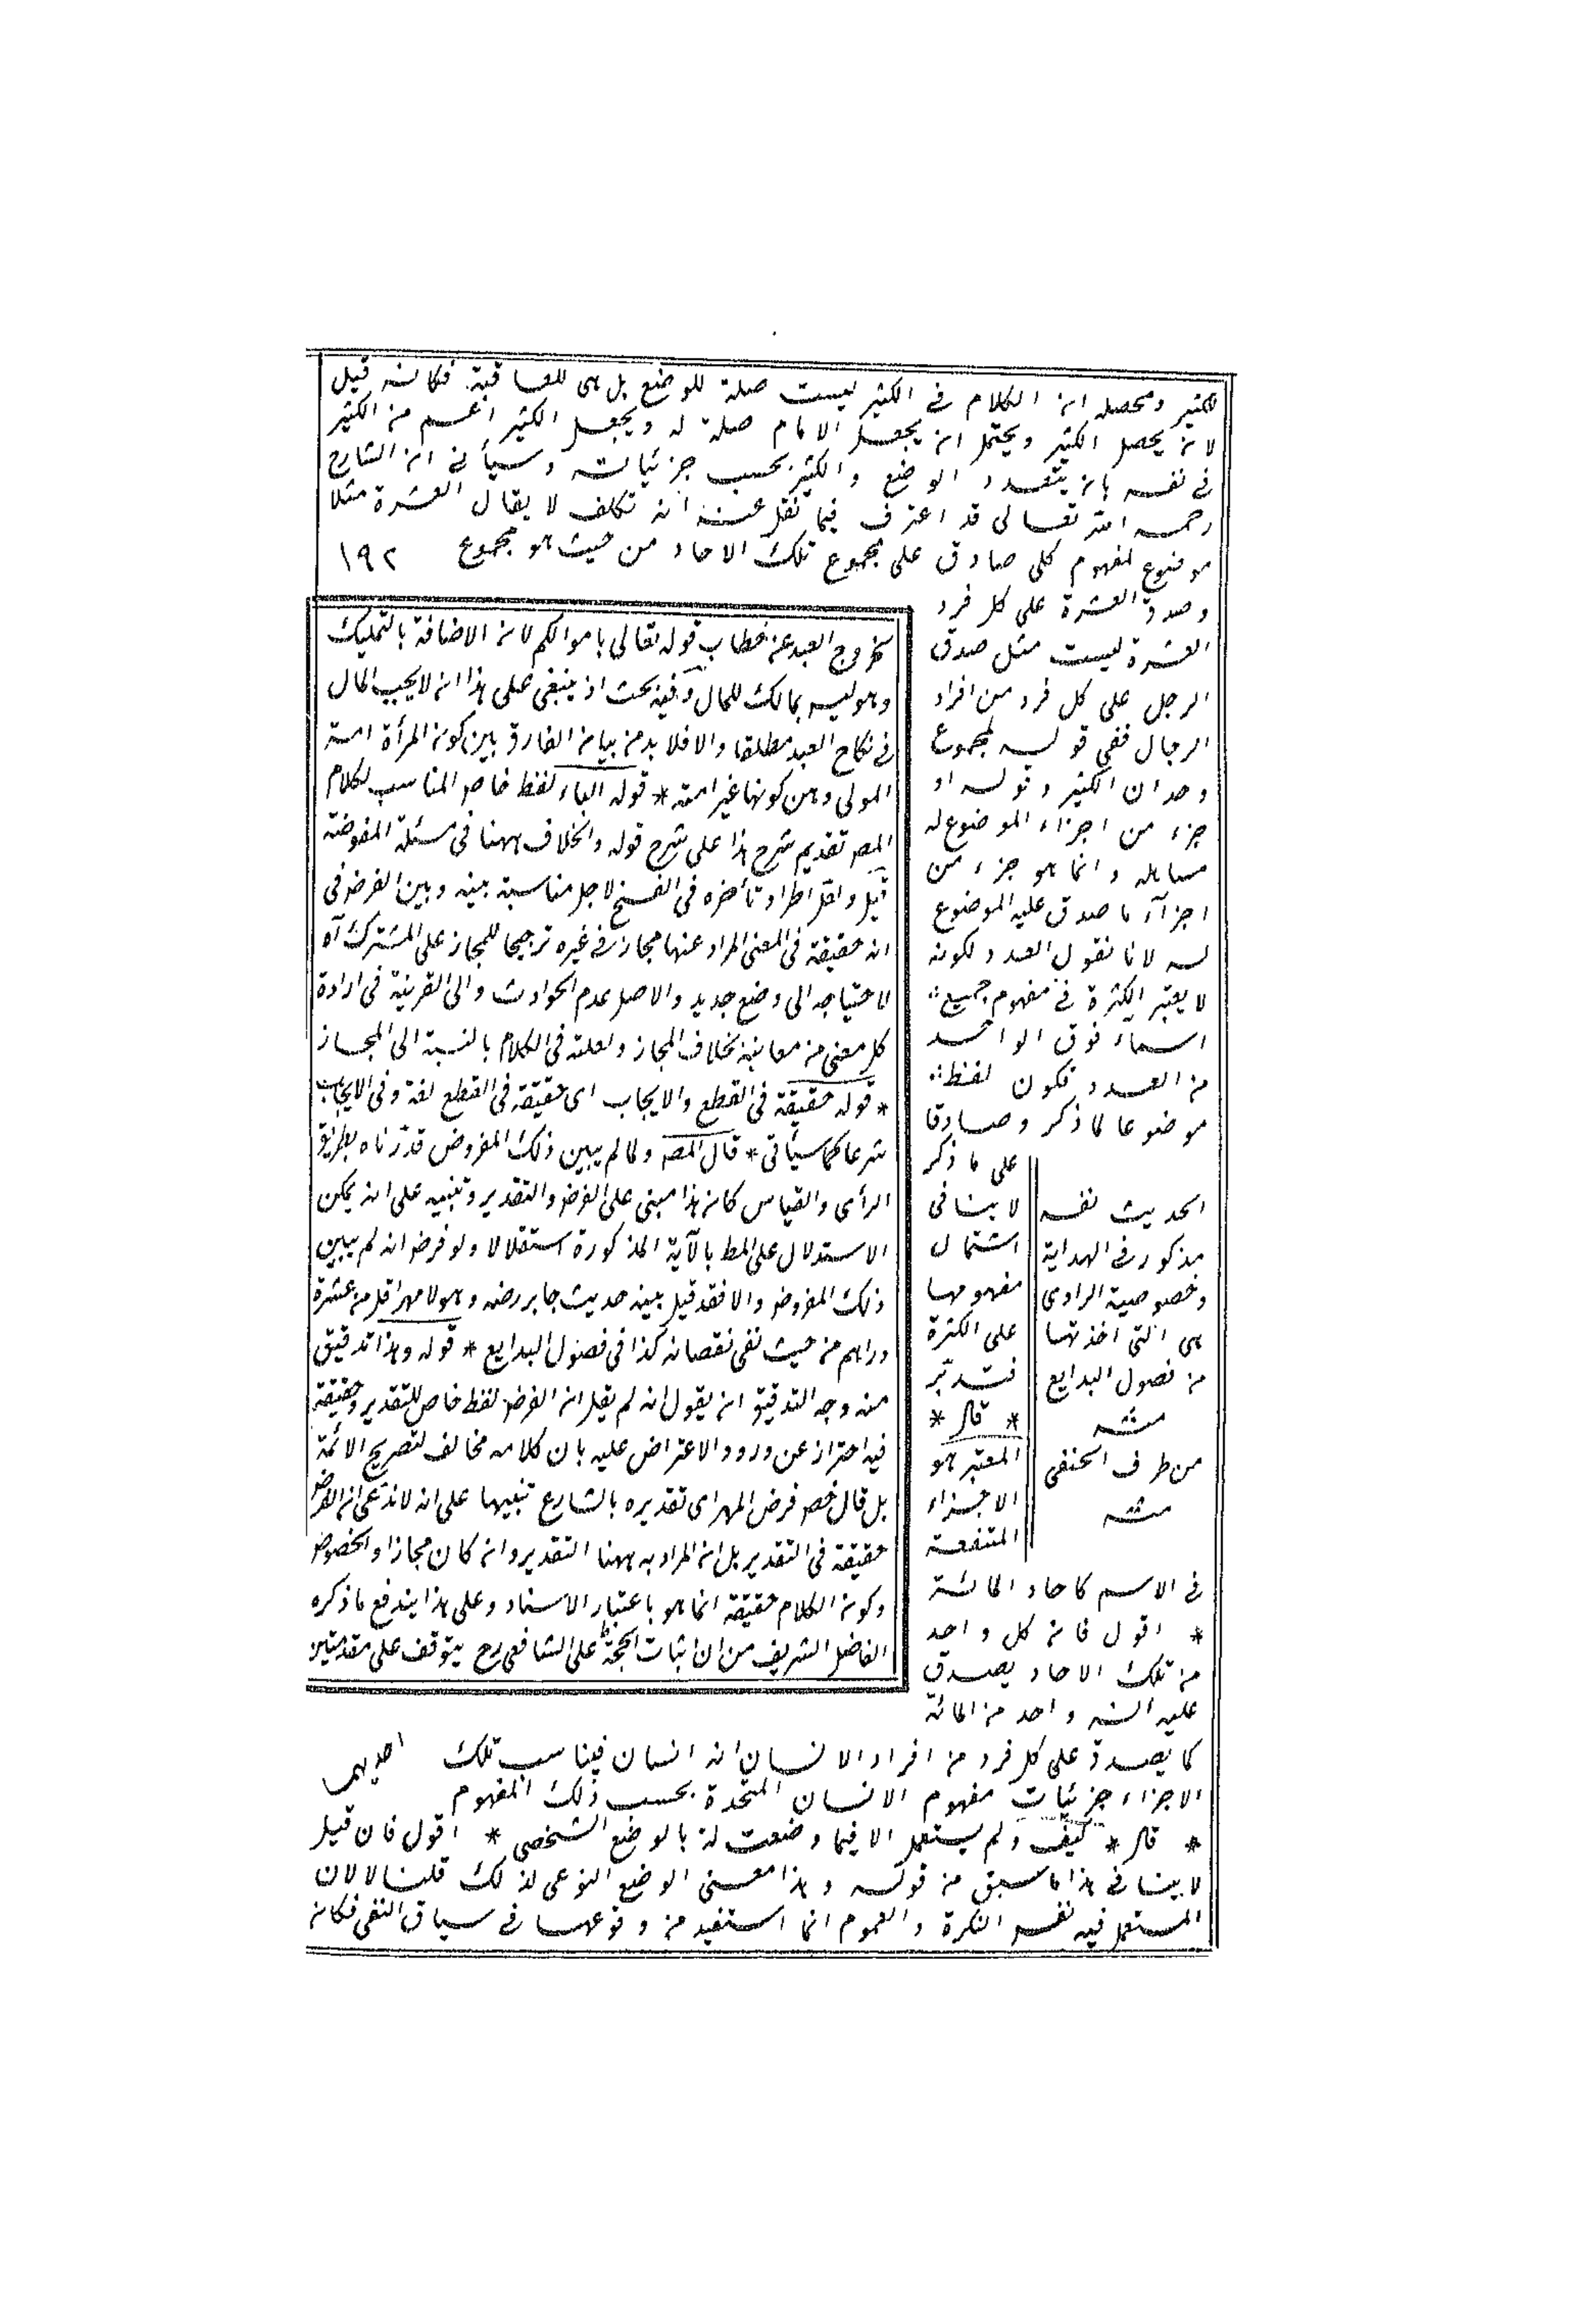 للكثير ومحصله ان الكلام في الكثير ليست صلة للوضع بل هى للعاقبة فكانه قيل
لان يحصل الكثير ويحتمل ان يجعل الامام صلة له ويجعل الكثير اعم من الكثير
في نفسه بان يتعدد الوضع والكثير بحسب جزئياته وسيأتى ان الشارح
رحمه الله تعالى قد اعترف فيما نقل عنه انه تكلف لا يقال العشرة مثلا
موضوع لمفهوم كلى صادق على مجموع تلك الاحاد من حيث هو مجموع ١٩٢
وصدق العشرة على كل فرد
العشرة ليست مثل صدق
الرجل على كل فرد من افراد
الرجال ففى قوله لمجموع
وحدان الكثير وقوله او
جزء من اجزاء الموضوع له
مساهله وانما هو جزء من
اجزاء ما صدق عليه الموضوع
له لانا نقول العدد لكونه
لا يعتبر الكثرة في مفهوم جميع
اسماء فوق الواحد
من العدد فكون لفظ
موضوعا لما ذكر وصادقا
على ما ذكر
لا ينافى
اشتمال
مفهومها
على الكثرة
فتدبر
* قال *
المعتبر هو
الاجزاء
المتفقة
في الاسم كاحاد المائة
* اقول فان كل واحد
من تلك الاحاد يصدق
عليه انه واحد من المائة
كما يصدق على كل فرد من افراد الانسان انه انسان فيناسب تلك
الاجزاء جزئيات مفهوم الانسان المتحدة بحسب ذلك المفهوم
* قال * كيف ولم يستعمل الا فيما وضعت له بالوضع الشخصى * اقول فان قيل
لا ينافى هذا ما سبق من قوله وهذا معنى الوضع النوعى لذلك قلنا لا لان
المستعمل فيه نفس النكرة والعموم انما استفيد من وقوعها في سياق النفى فكان
الحديث نفسه
مذكور فى الهداية
وخصوصية الراوى
هى التى اخذتها
من فصول البدايع
منه
من طرف الحنفى
منه
بخروج العبد عن خطاب قوله تعالى باموالكم لان الاضافة بالتمليك
وهو ليس بمالك للمال وفيه بحث اذ ينبغى على هذا ان لا يجب المال
فى نكاح العبد مطلقا والا فلا بد من بيان الفارق بين كون المرأة امة
المولى وبين كونها غير امة * قوله الباء لفظ خاص المناسب لكلام
المص تقديم شرح هذا على شرح قوله والخلاف ههنا فى مسئلة المفوضة
قيل ولعل اطراد تأخره فى النسخ لاجل مناسبة بينه وبين الفرض فى
انه حقيقة فى المعنى المراد عنها مجاز فى غيره ترجيحا للمجاز على المشترك اه
لاحتياجه الى وضع جديد والاصل عدم الحوادث والى القرينة فى ارادة
كل معنى من معانيه بخلاف المجاز ولعلته فى الكلام بالنسبة الى المجاز
* قوله حقيقة فى القطع والايجاب اى حقيقة فى القطع لغة وفى الايجاب
شرعا كما سيأتى * قال المص ولما لم يبين ذلك المفروض قدرناه بطريق
الرأى والقياس كان هذا مبنى على الفرض والتقدير وتنبيه على انه يمكن
الاستدلال على المط بالآية المذكورة استقلالا ولو فرض انه لم يبين
ذلك المفروض والا فقد قيل بينه حديث جابر رضه وهو لا مهر اقل من عشرة
دراهم من حيث نفى نقصانه كذا فى فصول البدايع * قوله وهذا تدقيق
منه وجه التدقيق ان يقول انه لم يقل ان الفرض لفظ خاص للتقدير وحقيقة
فيه احتراز عن ورود الاعتراض عليه بان كلامه مخالف لتصريح الائمة
بل قال خص فرض المهر اى تقديره بالشارع تنبيها على انه لا ندعى ان الفرض
حقيقة فى التقدير بل ان المراد به ههنا التقدير وان كان مجازا والخصوص
وكون الكلام حقيقة انما هو باعتبار الاسناد وعلى هذا يندفع ما ذكره
الفاضل الشريف من ان اثبات الحجة على الشافعى رح يتوقف على مقدمتين
احديهما